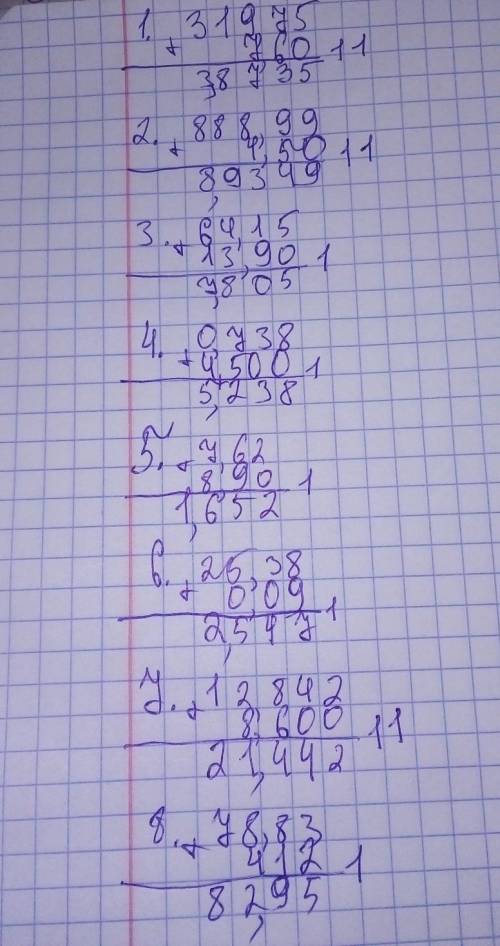 1. 319,75
+ 7,60 11
38 7 35
2. 888,99
+ 4,50 11
89349
3. 64,15
+ 13,90 1
78,05
4. 0,738
+ 4,500 1
5,238
5. 7,62
+ 8,90 1
1,652
6. 25,38
+ 0,09 1
2,547
7. 12 842
+ 8,600 11
21,442
8. 78,83
+ 412 1
82,95